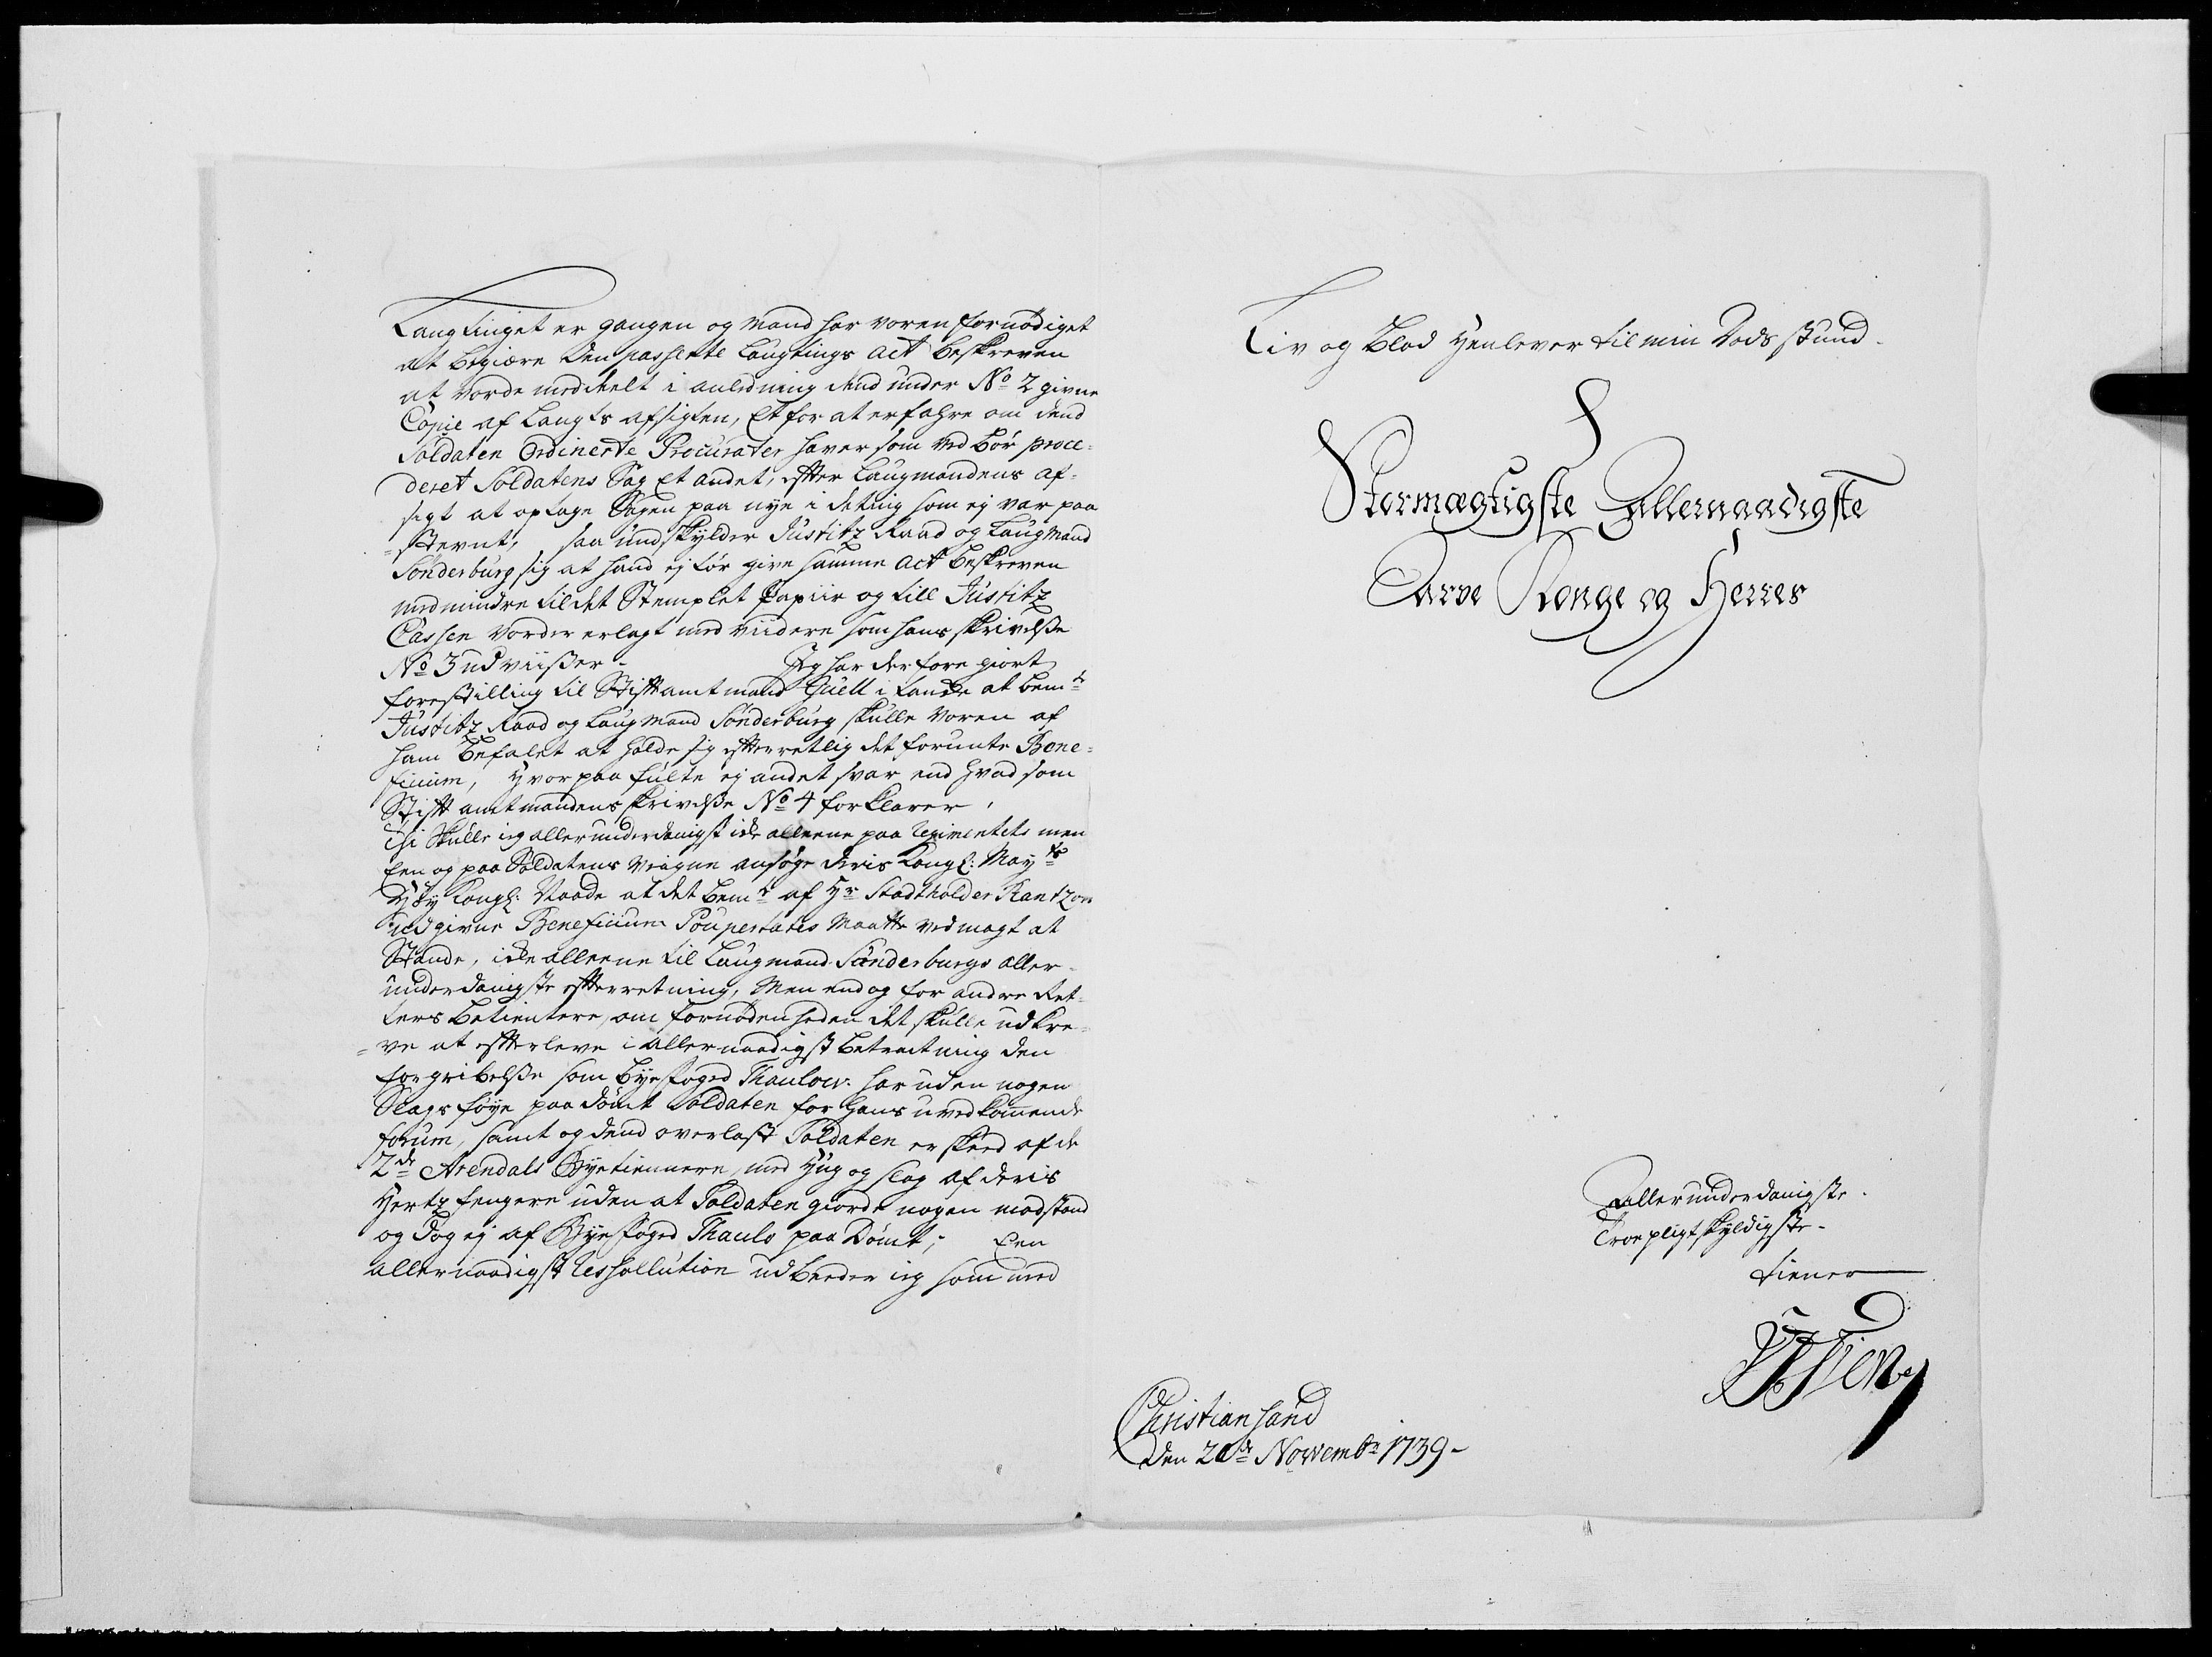 Laugtinget er gangen og mand har voren fornødiget
at begiære den passerte Laugtings Act beskreven
at vorde meddeelt i anledning dend under No 2 givne
Copie af Laugts afsigten, Et for at erfahre om dend
Soldaten Ordinerte Procurater haver som ved bør proce-
deret Soldatens Sag Et andet, efter Laugmandens af-
sigt at optage Sagen paa nye i deting som ej var paa
-stevnt, saa undskylder Justitz Raad og Laugmand
Sønderburg sig at hand ej tør give samme Act beskreven
med mindre til det Stemplet Papiir og till Justitz
Cassen vorder erlagt med viidere som hans skrivelse
No 3 udviiser - Jeg har derfore giort
forestilling til Stiftamtmand i tanke at bemte
Justitz Raad og Laugmand Sønderburg skulle voren af
ham befalet at holde sig efterretlig det forunte Bene-
ficium, hvorpaa fulte ej andet svar end hvad som
Stiftamtmandens skrivelse No 4 forklarer,
Thi skulle ieg allerunderdanigst icke alleene paa Regimentets men
End og paa Soldatens veigne ansøge deris Kongl: Mayts
Høy Kongl: Naade at det bemte af Hr Stadtholder Rantzou
udgivne Beneficium Poupertatis maatte ved magt at
Stande, icke alleene til Laugmand Sønderburgs aller-
underdanigste efterretning, Men end og for andre Ret-
ters betientere, om fornødenheden det skulle udkre-
-ve at efterleve i allernaadigst betractning den
forgribelse som byefoged Thaulow har uden nogen
Slags føye paa dømt Soldaten for hans uvedkommende
forum, samt og dend overlast Soldaten er skeed af de
2de Arendals Byetiennere, med Hug og slag af deris
Hertz fengere uden at Soldaten giorde nogen modstand
og dog ej af Byefoged Thaulo paa Dømt; Een
allernaadigst Ressollution udbeeder ieg som med
Liv og Blod henlever til min Døds stund.
Stormægtigste Allernaadigste
Arve Konge og Herres
Allerunderdanigste
Troe pligtskyldigste
tiener
Christiansand
den 20de Novembr 1739-